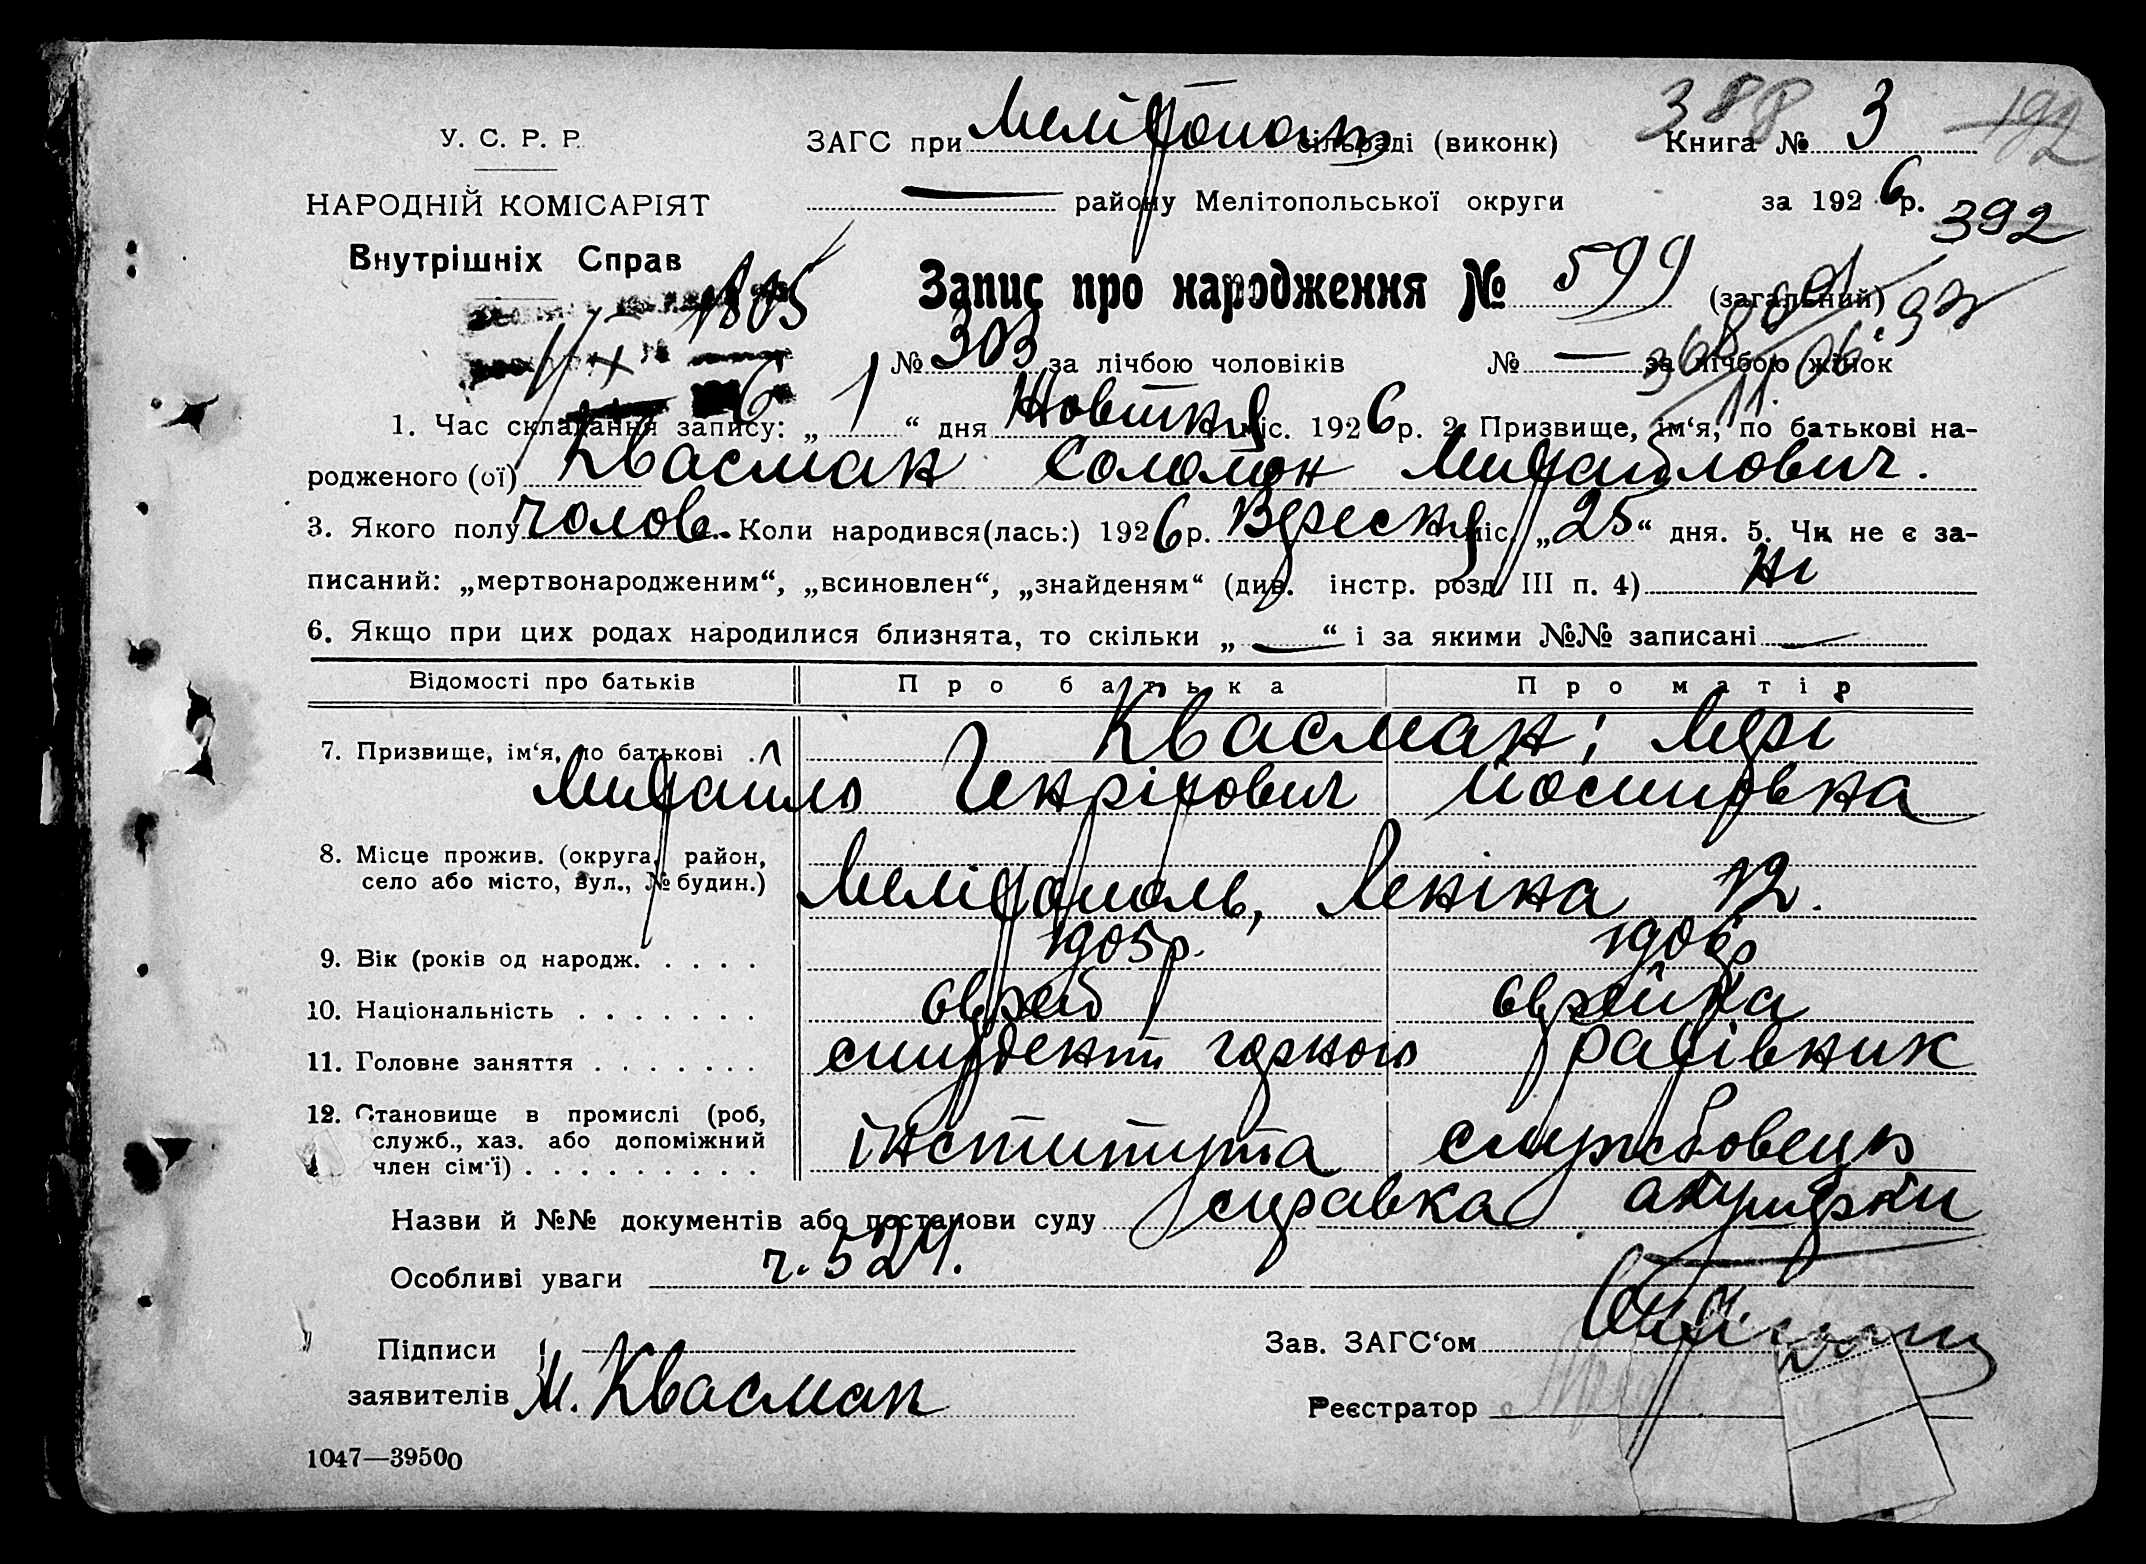 388
У. С. Р. Р.
ЗАГС при Меліто́поль сільраді (виконк)
Книга № 3
192
НАРОДНІЙ КОМІСАРІЯТ
— району Мелітопольської округи
за 1926 р.
392
Внутрішніх Справ
Запис про народження № 599 (загальний)
1805
№ 303 за лічбою чоловіків № — за лічбою жінок
1. Час складання запису: „ 1 “ дня Жовтня міс. 1926 р. 2. Призвище, ім‘я, по батькові на-
родженого (ої) Квасман Соломон Михайлович.
3. Якого полу чолов. Коли народився(лась:) 1926 р. Вересня міс. „ 25 “ дня. 5. Чи не є за-
писаний: „мертвонародженим“, „всиновлен“, „знайденям“ (див. інстр. розд. III п. 4) ні
6. Якщо при цих родах народилися близнята, то скільки „ — “ і за якими №№ записані —
Відомості про батьків Про батька Про матір
7. Призвище, ім‘я, по батькові . . Квасман; Мері
Михайло Генріхович Йосиповна
8. Місце прожив. (округа, район,
село або місто, вул., № будин.) Мелітополь, Леніна 12.
9. Вік (років од народж. . . . . 1905 р. 1906 р
10. Національність . . . . . . . єврей єврейка
11. Головне заняття . . . . . . . студент горного рахівник
12. Становище в промислі (роб,
служб., хаз. або допоміжний
член сім‘ї) . . . . . . . . . інститута службовець
Назви й №№ документів або постанови суду справка акушерки
Особливі уваги ч. 524.
Підписи
Зав. ЗАГС‘ом
заявителів М. Квасман
Реєстратор
1047—39500